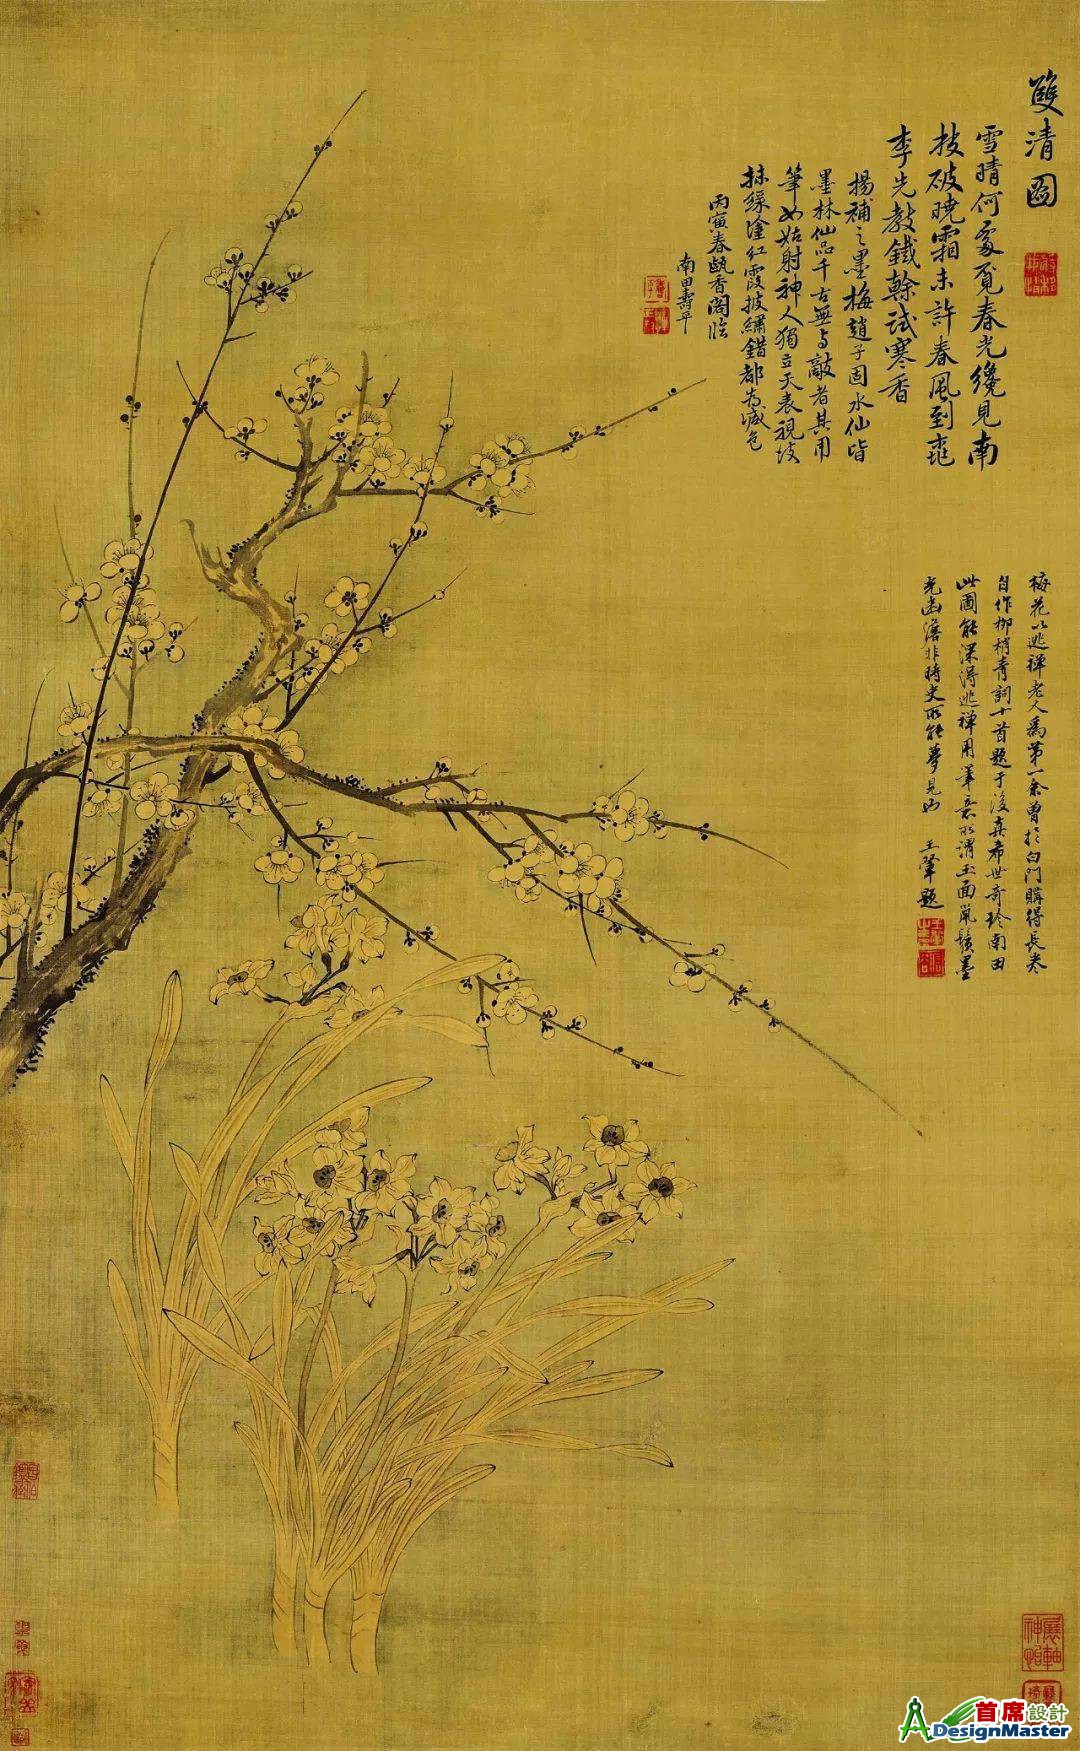 雙清圖
雪晴何處覓春光纔見南
枝破曉霜未許春風到桃
李先教鐵榦試寒香
揚補之墨梅趙子固水仙皆
墨林仙品千古無与敵者其用
筆如姑射神人獨立天表視坡
抹綵塗紅霞披繡錯都為減色
丙寅春甌香閣臨
南田壽平
梅花以逃禪老人為第一余曾於白門購得長卷
自作柳梢青詞十首題于後真希世奇珍南田
此圖能深得逃禪用筆意所謂玉面鼠鬚墨
光幽澹非時史所能夢見也 王翬題
首席設計
DesignMaster